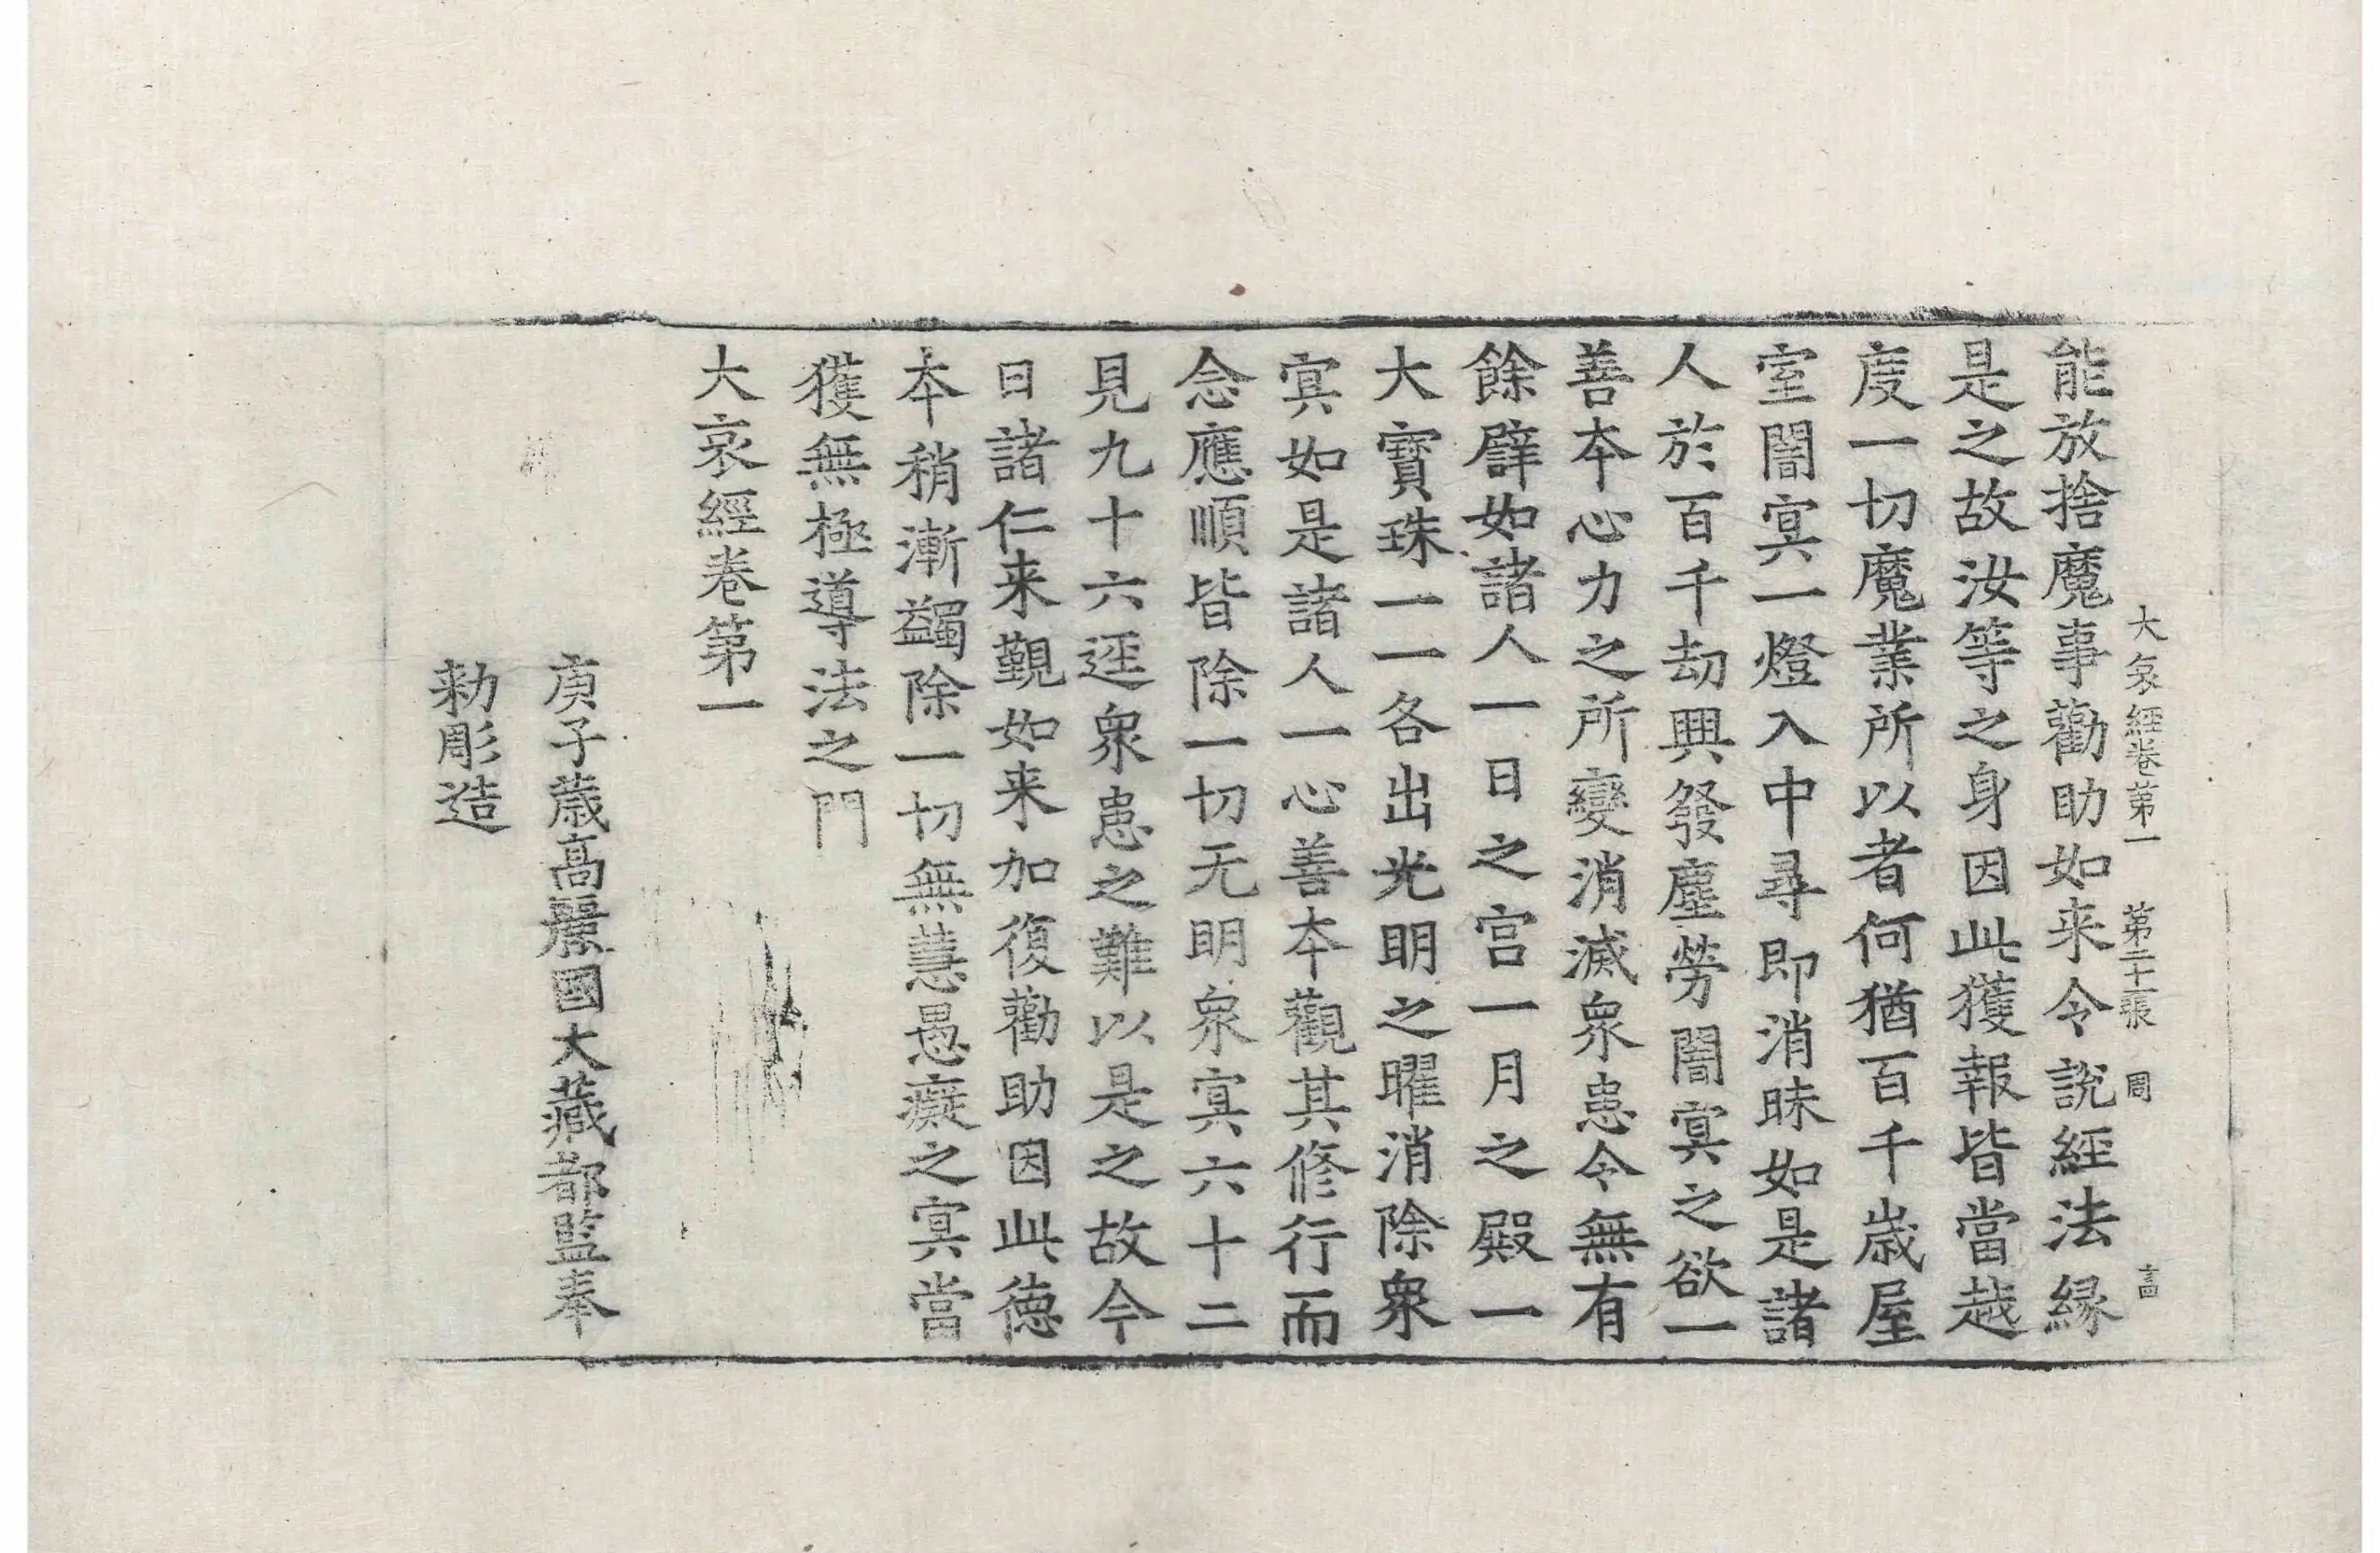 大哀經卷第一 第二十張 周
能放捨魔事勸助如来令說經法緣
是之故汝等之身因此獲報皆當越
度一切魔業所以者何猶百千歲屋
室闇冥一燈入中尋即消昧如是諸
人於百千劫興發塵勞闇冥之欲一
善本心力之所變消滅衆患令無有
餘譬如諸人一日之宫一月之殿一
大寶珠一一各出光明之曜消除衆
冥如是諸人一心善本觀其修行而
念應順皆除一切无明衆冥六十二
見九十六逕衆患之難以是之故今
日諸仁来覲如来加復勸助因此德
本稍漸蠲除一切無慧愚癡之冥當
獲無極導法之門
大哀經卷第一
庚子歲高麗國大藏都監奉
勑彫造